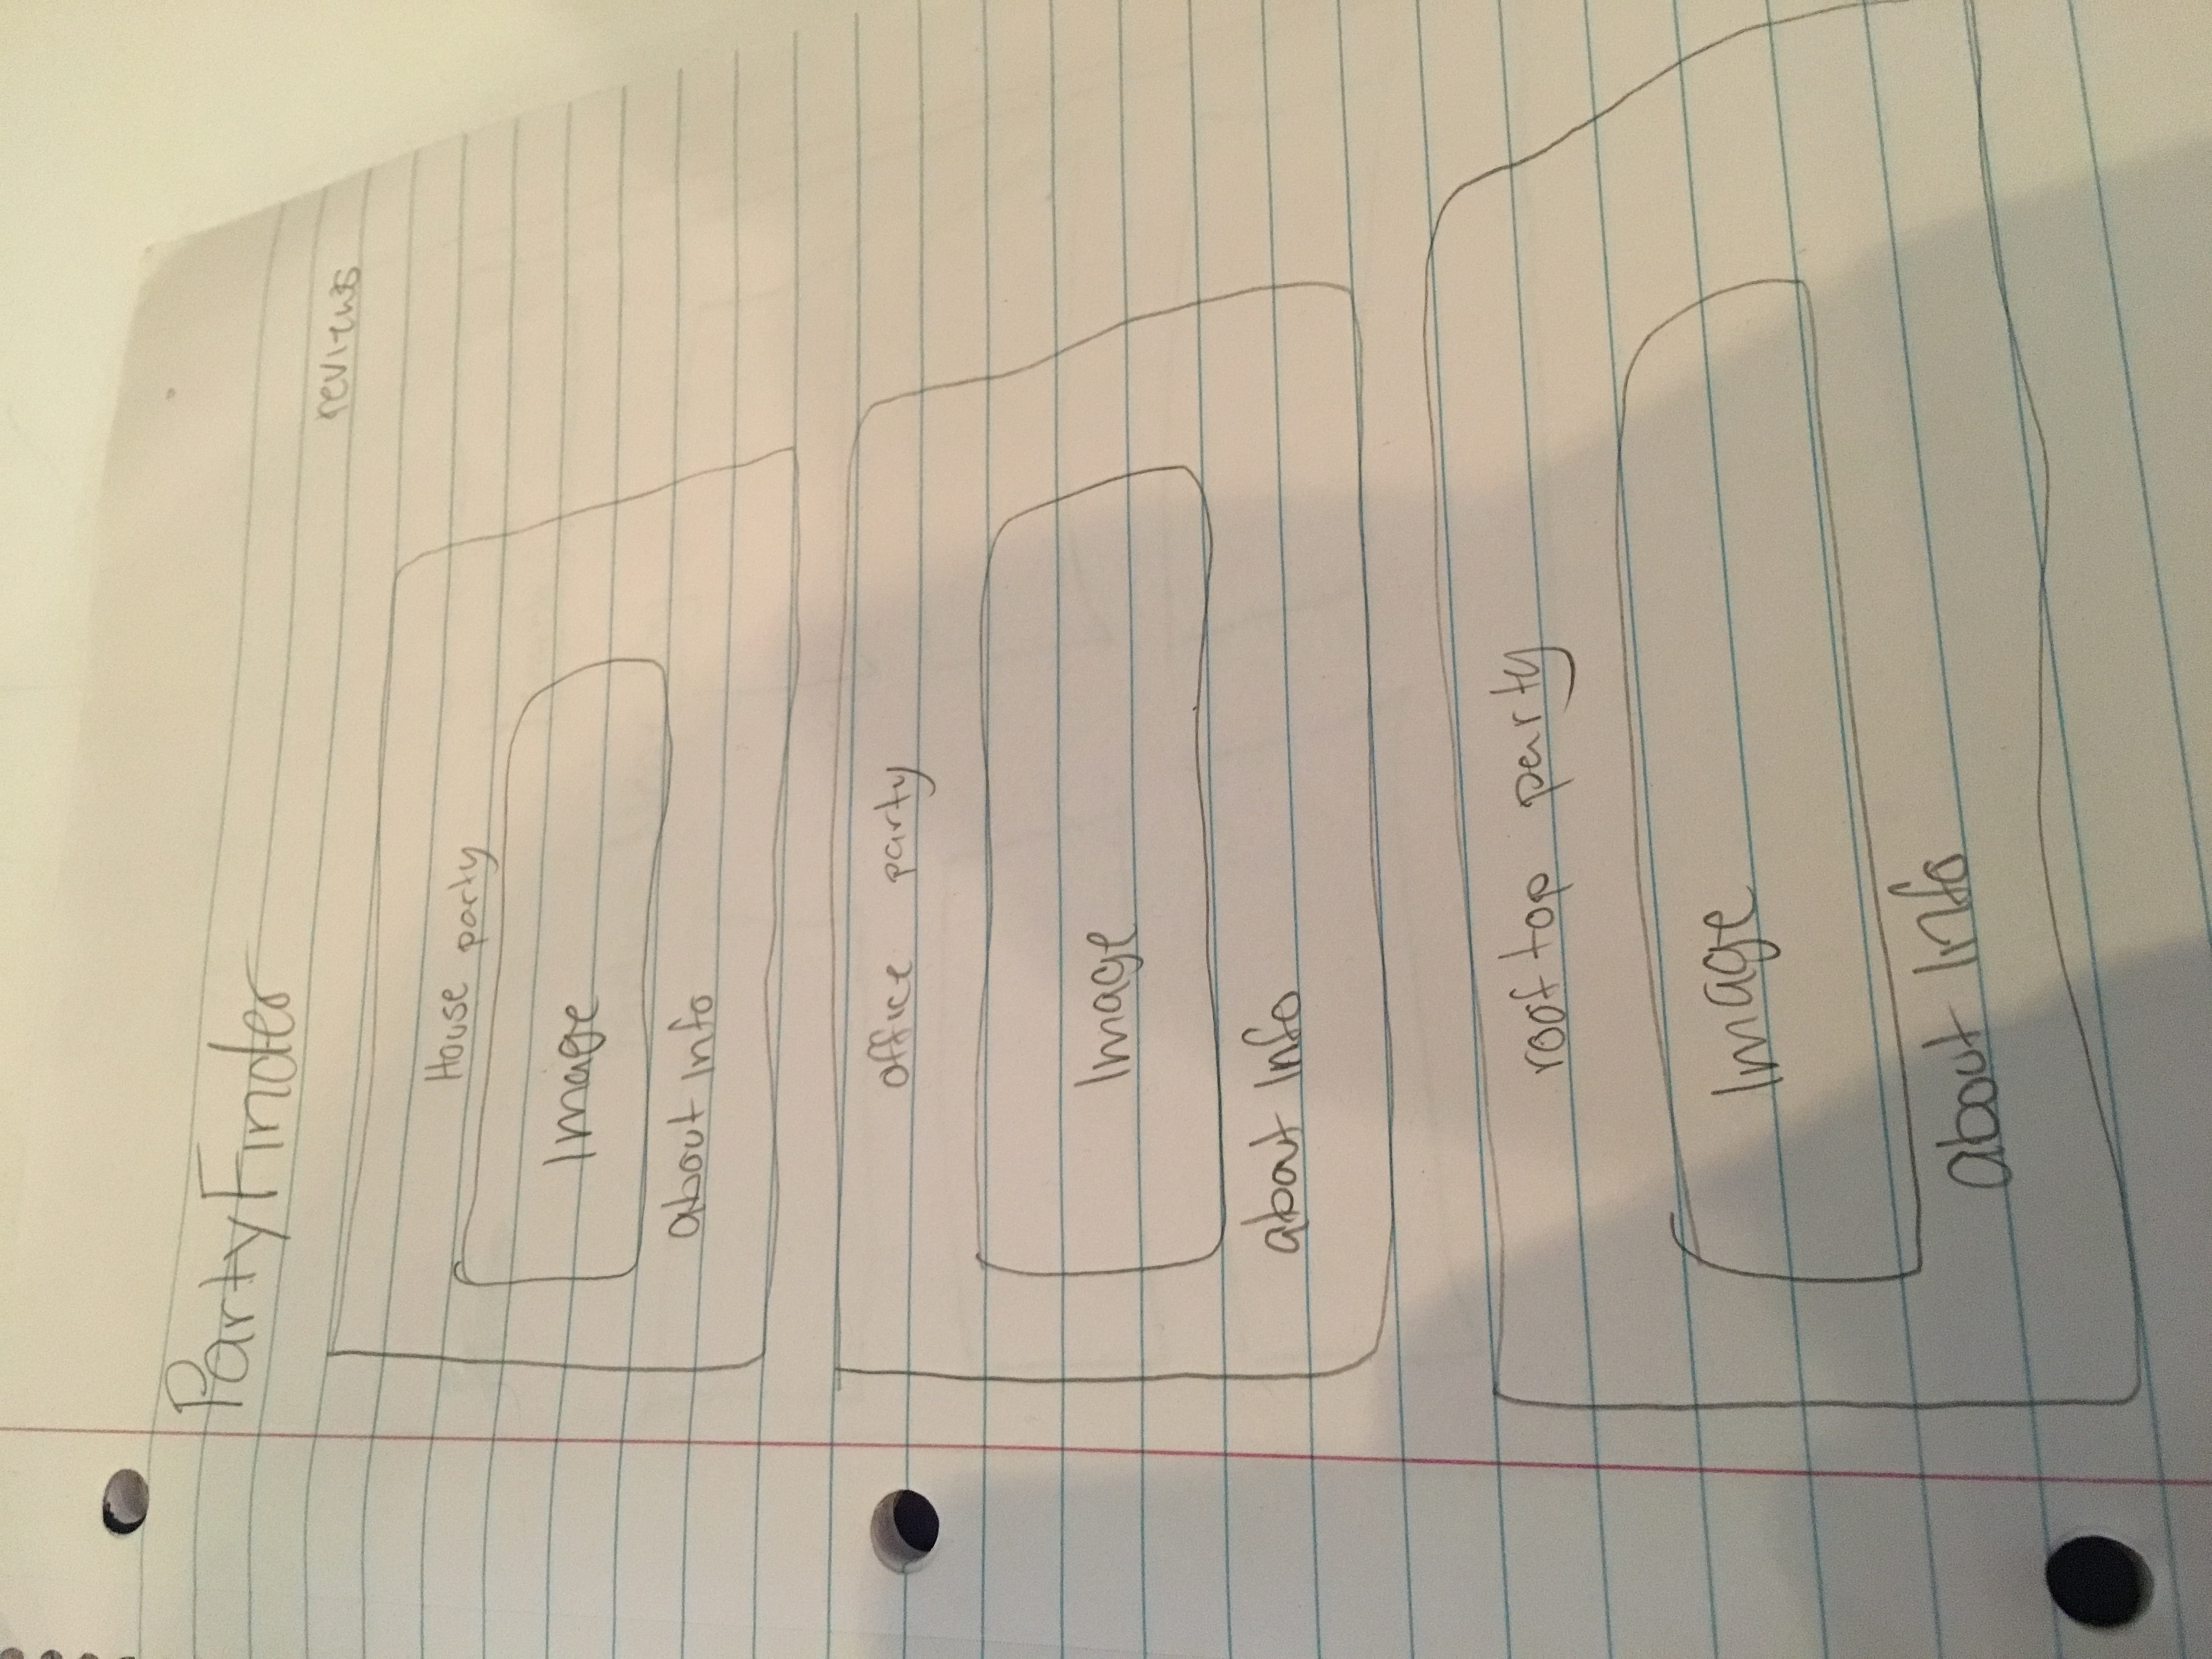 PartyFinder
reviews
House party
Image
about Info
office party
Image
about Info
rooftop party
Image
about Info